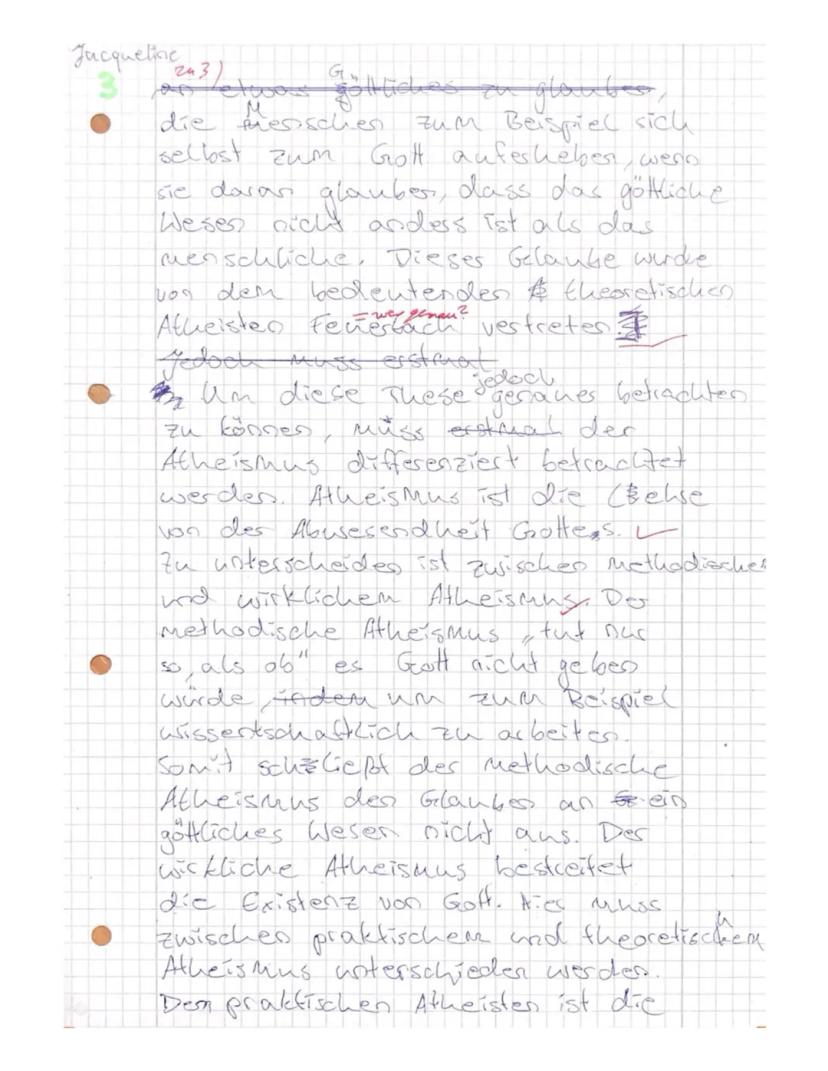 Jacqueline
zu 3)
3
an etwas göttliches zu glauben,
die Menschen zum Beispiel sich
selbst zum Gott auferheben, wenn
sie daran glauben, dass das göttliche
Wesen nicht anders ist als das
menschliche. Dieser Glaube wurde
von dem bedeutenden theoretischen
= wer genau?
Atheisten Feuerbach vertreten.
jedoch muss erstmal
jedoch
Um diese These genaues betrachten
zu können, muss erstmal der
Atheismus differenziert betrachtet
werden. Atheismus ist die Lehre
von der Abwesendheit Gottes.
Zu unterscheiden ist zwischen methodischen
und wirklichen Atheismus. Der
methodische Atheismus „tut nur
so, als ob" es Gott nicht geben
würde, indem um zum Beispiel
wissentschaftlich zu arbeiten.
Somit schließt der methodische
Atheismus den Glauben an ein
göttliches Wesen nicht aus. Der
wirkliche Atheismus bestreitet
die Existenz von Gott. Hier muss
zwischen praktischem und theoretischem
Atheismus unterschieden werden.
Dem praktischen Atheisten ist die